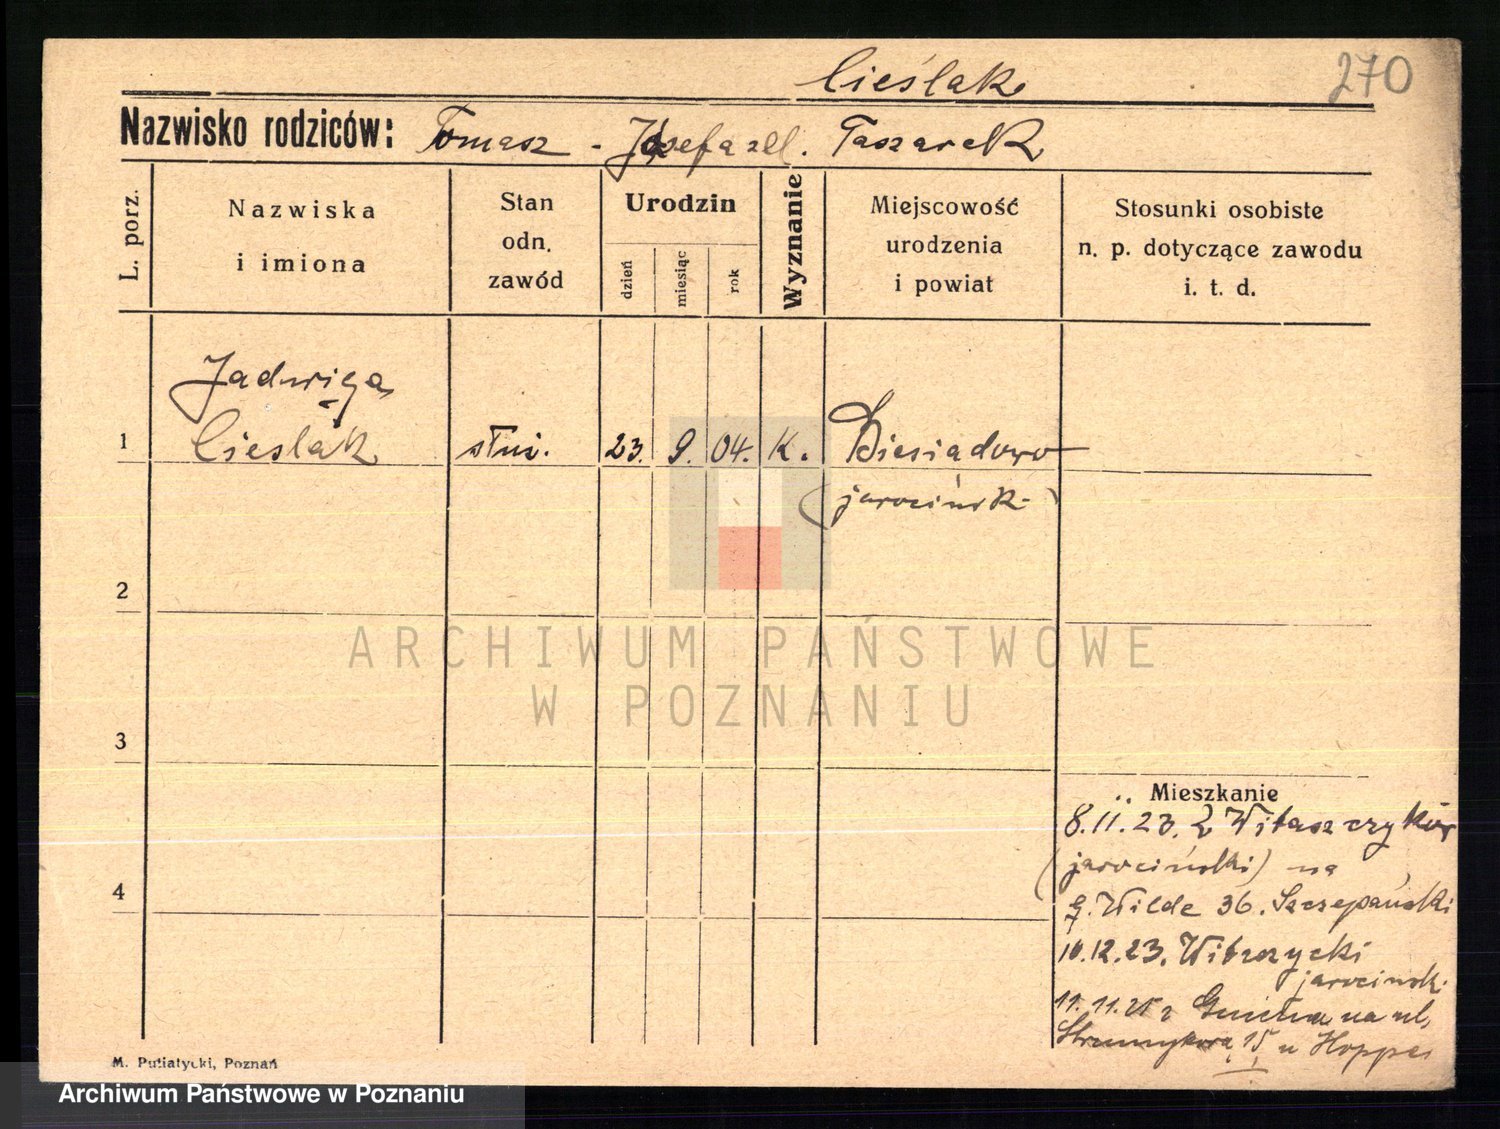 Cieślak
270
Nazwisko rodziców: Tomasz - Józefa zd. Taszarek
L. porz.
Nazwiska
i imiona
Stan
odn.
zawód
Urodzin
dzień
miesiąc
rok
Wyznanie
Miejscowość
urodzenia
i powiat
Stosunki osobiste
n. p. dotyczące zawodu
i. t. d.
Jadwiga
1 Cieslak służ. 23. 9. 04. K. Biesiadowo
(jarocińsk-)
2
3
4
ARCHIWUM PAŃSTWOWE
W POZNANIU
Mieszkanie
8.11.23. z Witaszczyków
(jarociński) na
g. Wilde 36. Szczepański
10.12.23. Witaszycki
jarocinsk.
11.11.25 z na ul.
Strumykowa 15 u Hoppe
M. Putiatycki, Poznań
Archiwum Państwowe w Poznaniu